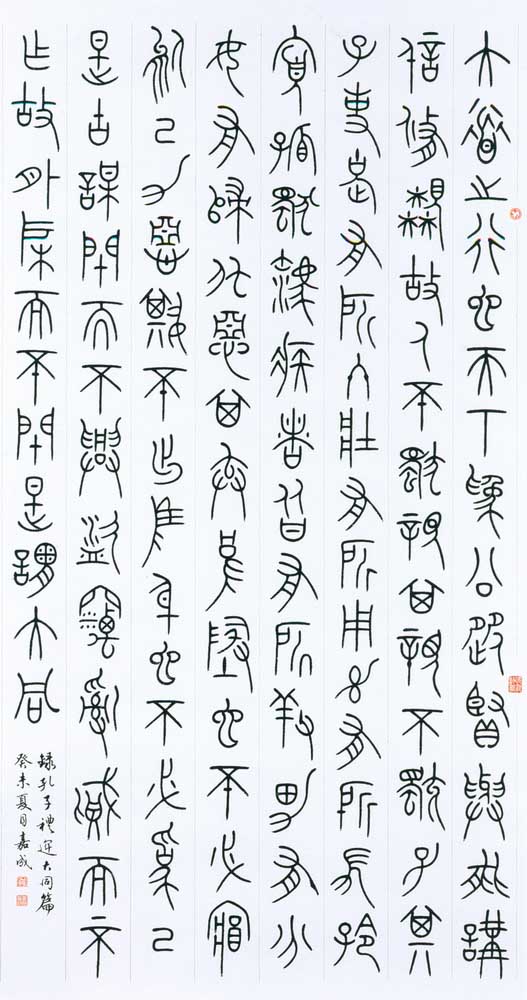 大道之行也天下為公選賢與能講
信修睦故人不獨親其親不獨子其
子使老有所終壯有所用幼有所長矜
寡孤獨廢疾者皆有所養男有分
女有歸貨惡其棄於地也不必藏
於己力惡其不出於身也不必為己
是故謀閉而不興盜竊亂賊而不
作故外戶而不閉是謂大同
錄孔子禮運大同篇
癸未夏月嘉成